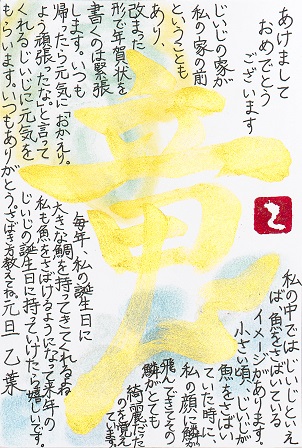 あけまして
おめでとう
ございます
じいじの家が
私の家の前
ということも
あり、
改まった
形で年賀状を
書くのは緊張
します。いつも
帰ったら元気に「おかえり。
よう頑張ったな」と言って
くれるじいじに元気を
もらいます。いつもありがとう
竜
私の中では「じいじ」といえ
ば魚をさばいている
イメージがあります。
小さい頃、じいじが
魚をさば
いていた時に、
私の顔に鱗が
飛んできてその
鱗がとても
綺麗だった
のを覚え
ています。
毎年、私の誕生日に
大きな鯛を持ってきてくれるね
私も魚をさばけるようになって来年の
じいじの誕生日に持っていけたら嬉しいです。
さばき方教えてね。元旦 乙葉